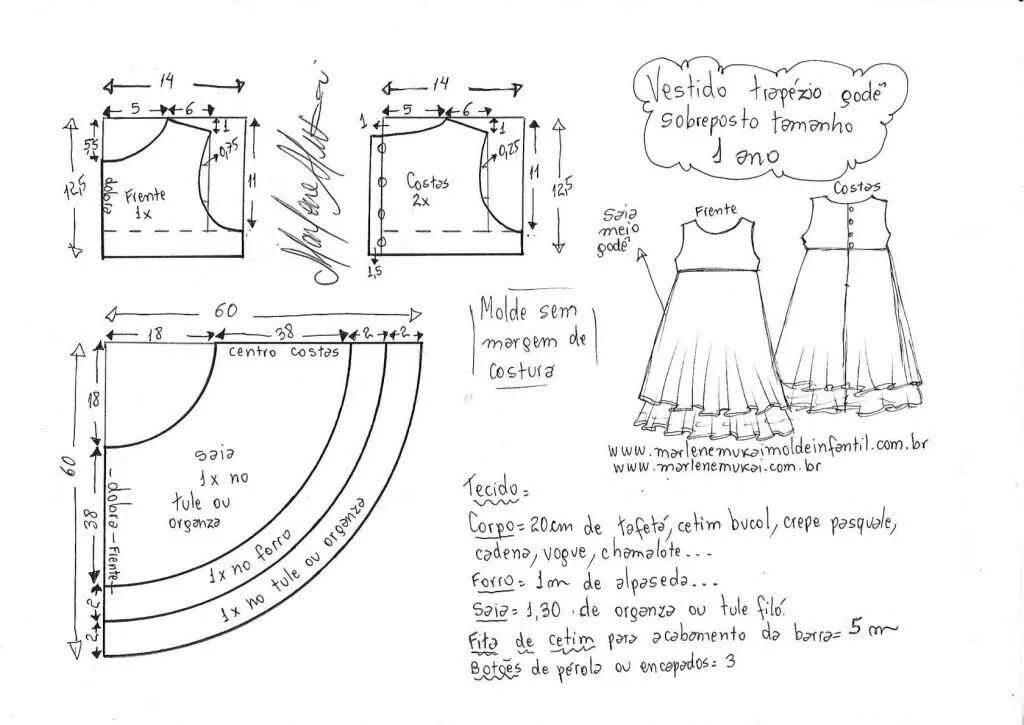 Vestido trapézio godê
sobreposto tamanho
1 ano
14
5
6
1
5,5
12,5
0,75
11
dobra
Frente
1x
14
5
6
1
1
0,25
Costas
2x
11
12,5
1,5
Frente
Costas
Saia
meio
godê
60
18
38
2
2
centro costas
60
18
38
2
2
dobra - Frente
saia
1x no
tule ou
organza
1x no forro
1x no tule ou organza
Molde sem
margem de
costura
www.marlenemukaimoldeinfantil.com.br
www.marlenemukai.com.br
Tecido=
Corpo= 20cm de tafetá, cetim bucol, crepe pasquale,
cadena, vogue, chamalote...
Forro= 1m de alpaseda...
Saia= 1,30 de organza ou tule filó.
Fita de cetim para acabamento da barra= 5 m
Botões de pérola ou encapados= 3